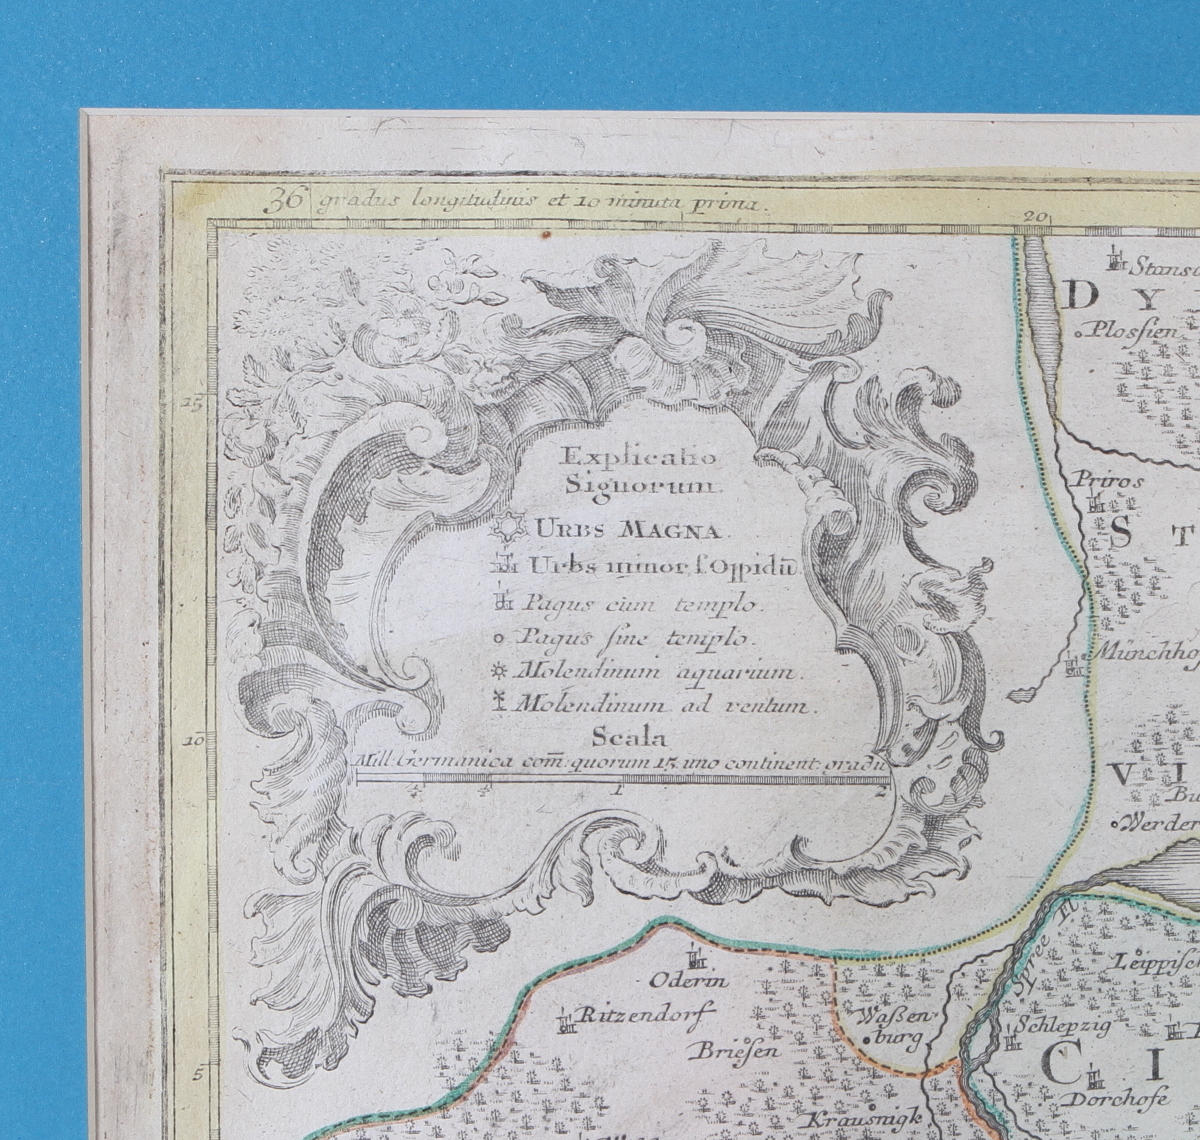 36 gradus longitudinis et 10 minuta prima.
20
15
10
5
Explicatio
Signorum.
URBS MAGNA.
Urbs minor, ſ. Oppidū
Pagus cum templo.
Pagus ſine templo.
Molendinum aquarium.
Molendinum ad ventum.
Scala
Mill. Germanica com̄: quorum 15 uno continent gradu
1 2
D Y
Plosſien
Priros
S T
Münchho
V I
Werder
Spree Fl
Leippiſch
Oderin
Ritzendorf
Brieſen
Waßen
burg
Schlepzig
C I
Dorchofe
Krausnigk